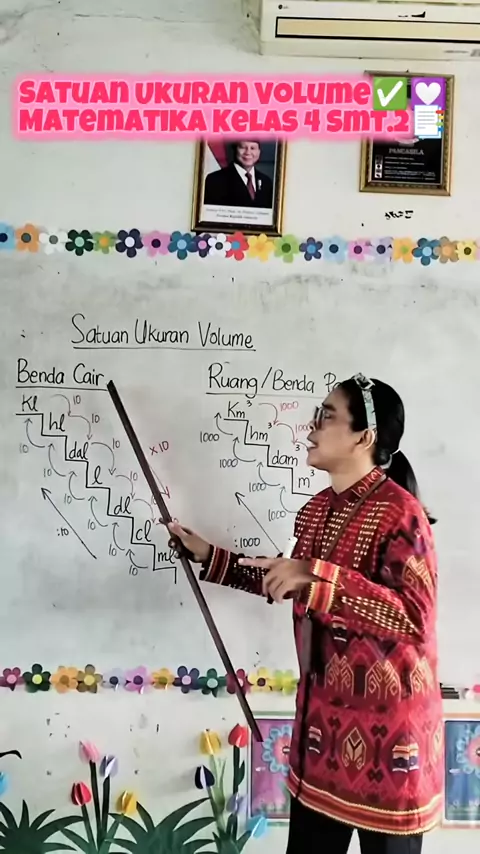 SATUAN UKURAN VOLUME✅💜
MATEMATIKA KELAS 4 SMT.2📑
PANCASILA
Satuan Ukuran Volume
Benda Cair
Kl
hl
dal
l
dl
cl
ml
10
10
10
10
10
10
10
10
10
10
x10
:10
Ruang/Benda Pa
Km³
hm³
dam³
m³
1000
1000
1000
1000
1000
1000
:1000